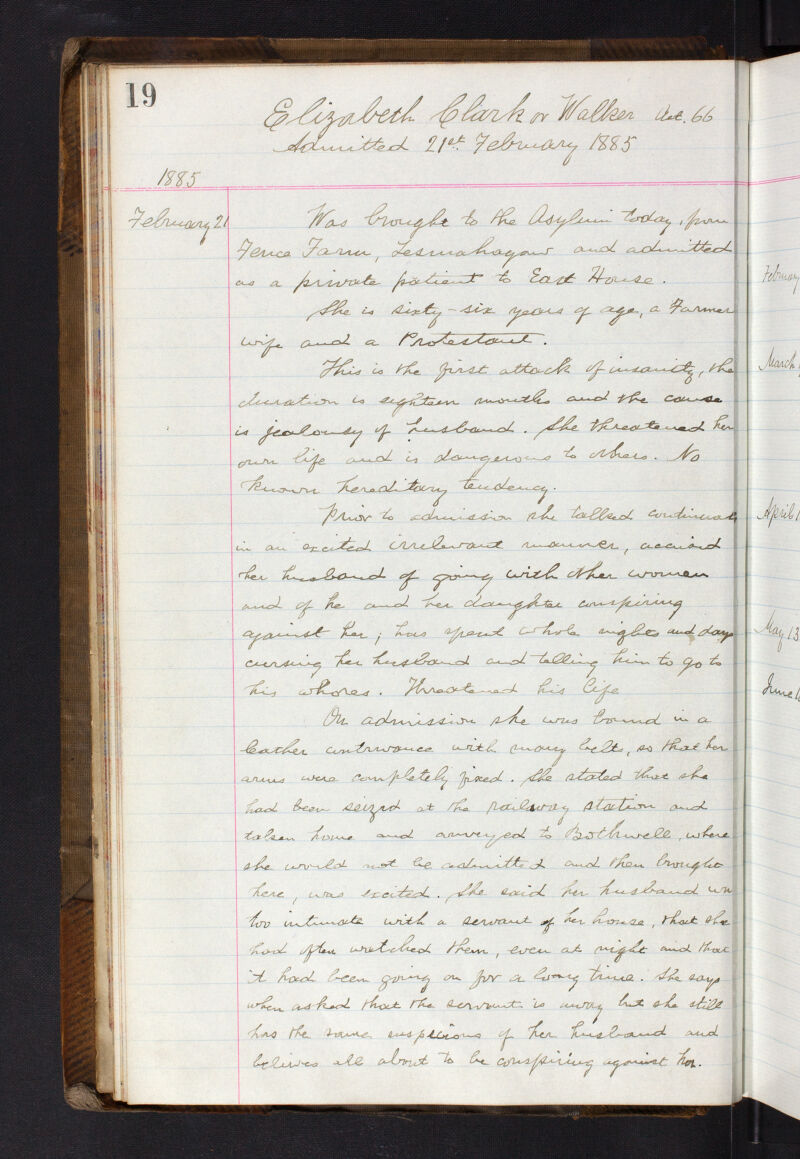 19
Elizabeth Clark or Walker Aet. 66
Admitted 21st February 1885
1885
February 21
Was brought to the Asylum today, from
Fence Farm, Lesmahagow and admitted
as a private patient to East House.
She is sixty-six years of age, a Farmer
wife and a Protestant.
This is the first attack of insanity, the
duration is eighteen months and the cause
is jealousy of husband. She threatened her
own life and is dangerous to others. No
known hereditary tendency.
Prior to admission she talked continually
in an excited irrelevant manner, accused
her husband of going with other women
and of he and her daughter conspiring
against her; has spent whole nights and days
cursing her husband and telling him to go to
his whores. Threatened his life
On admission she was bound in a
leather contrivance with many belts, so that her
arms were completely fixed. She stated that she
had been seized at the railway station and
taken home and conveyed to Bothwell, where
she would not be admitted and then brought
here, was excited. She said her husband was
too intimate with a servant of her house, that she
had often watched them, even at night and that
it had been going on for a long time. She says
when asked that the servant is away but she still
has the same suspicions of her husband and
believes all about to be conspiring against her.
February
March
April 1
May 13
June 1